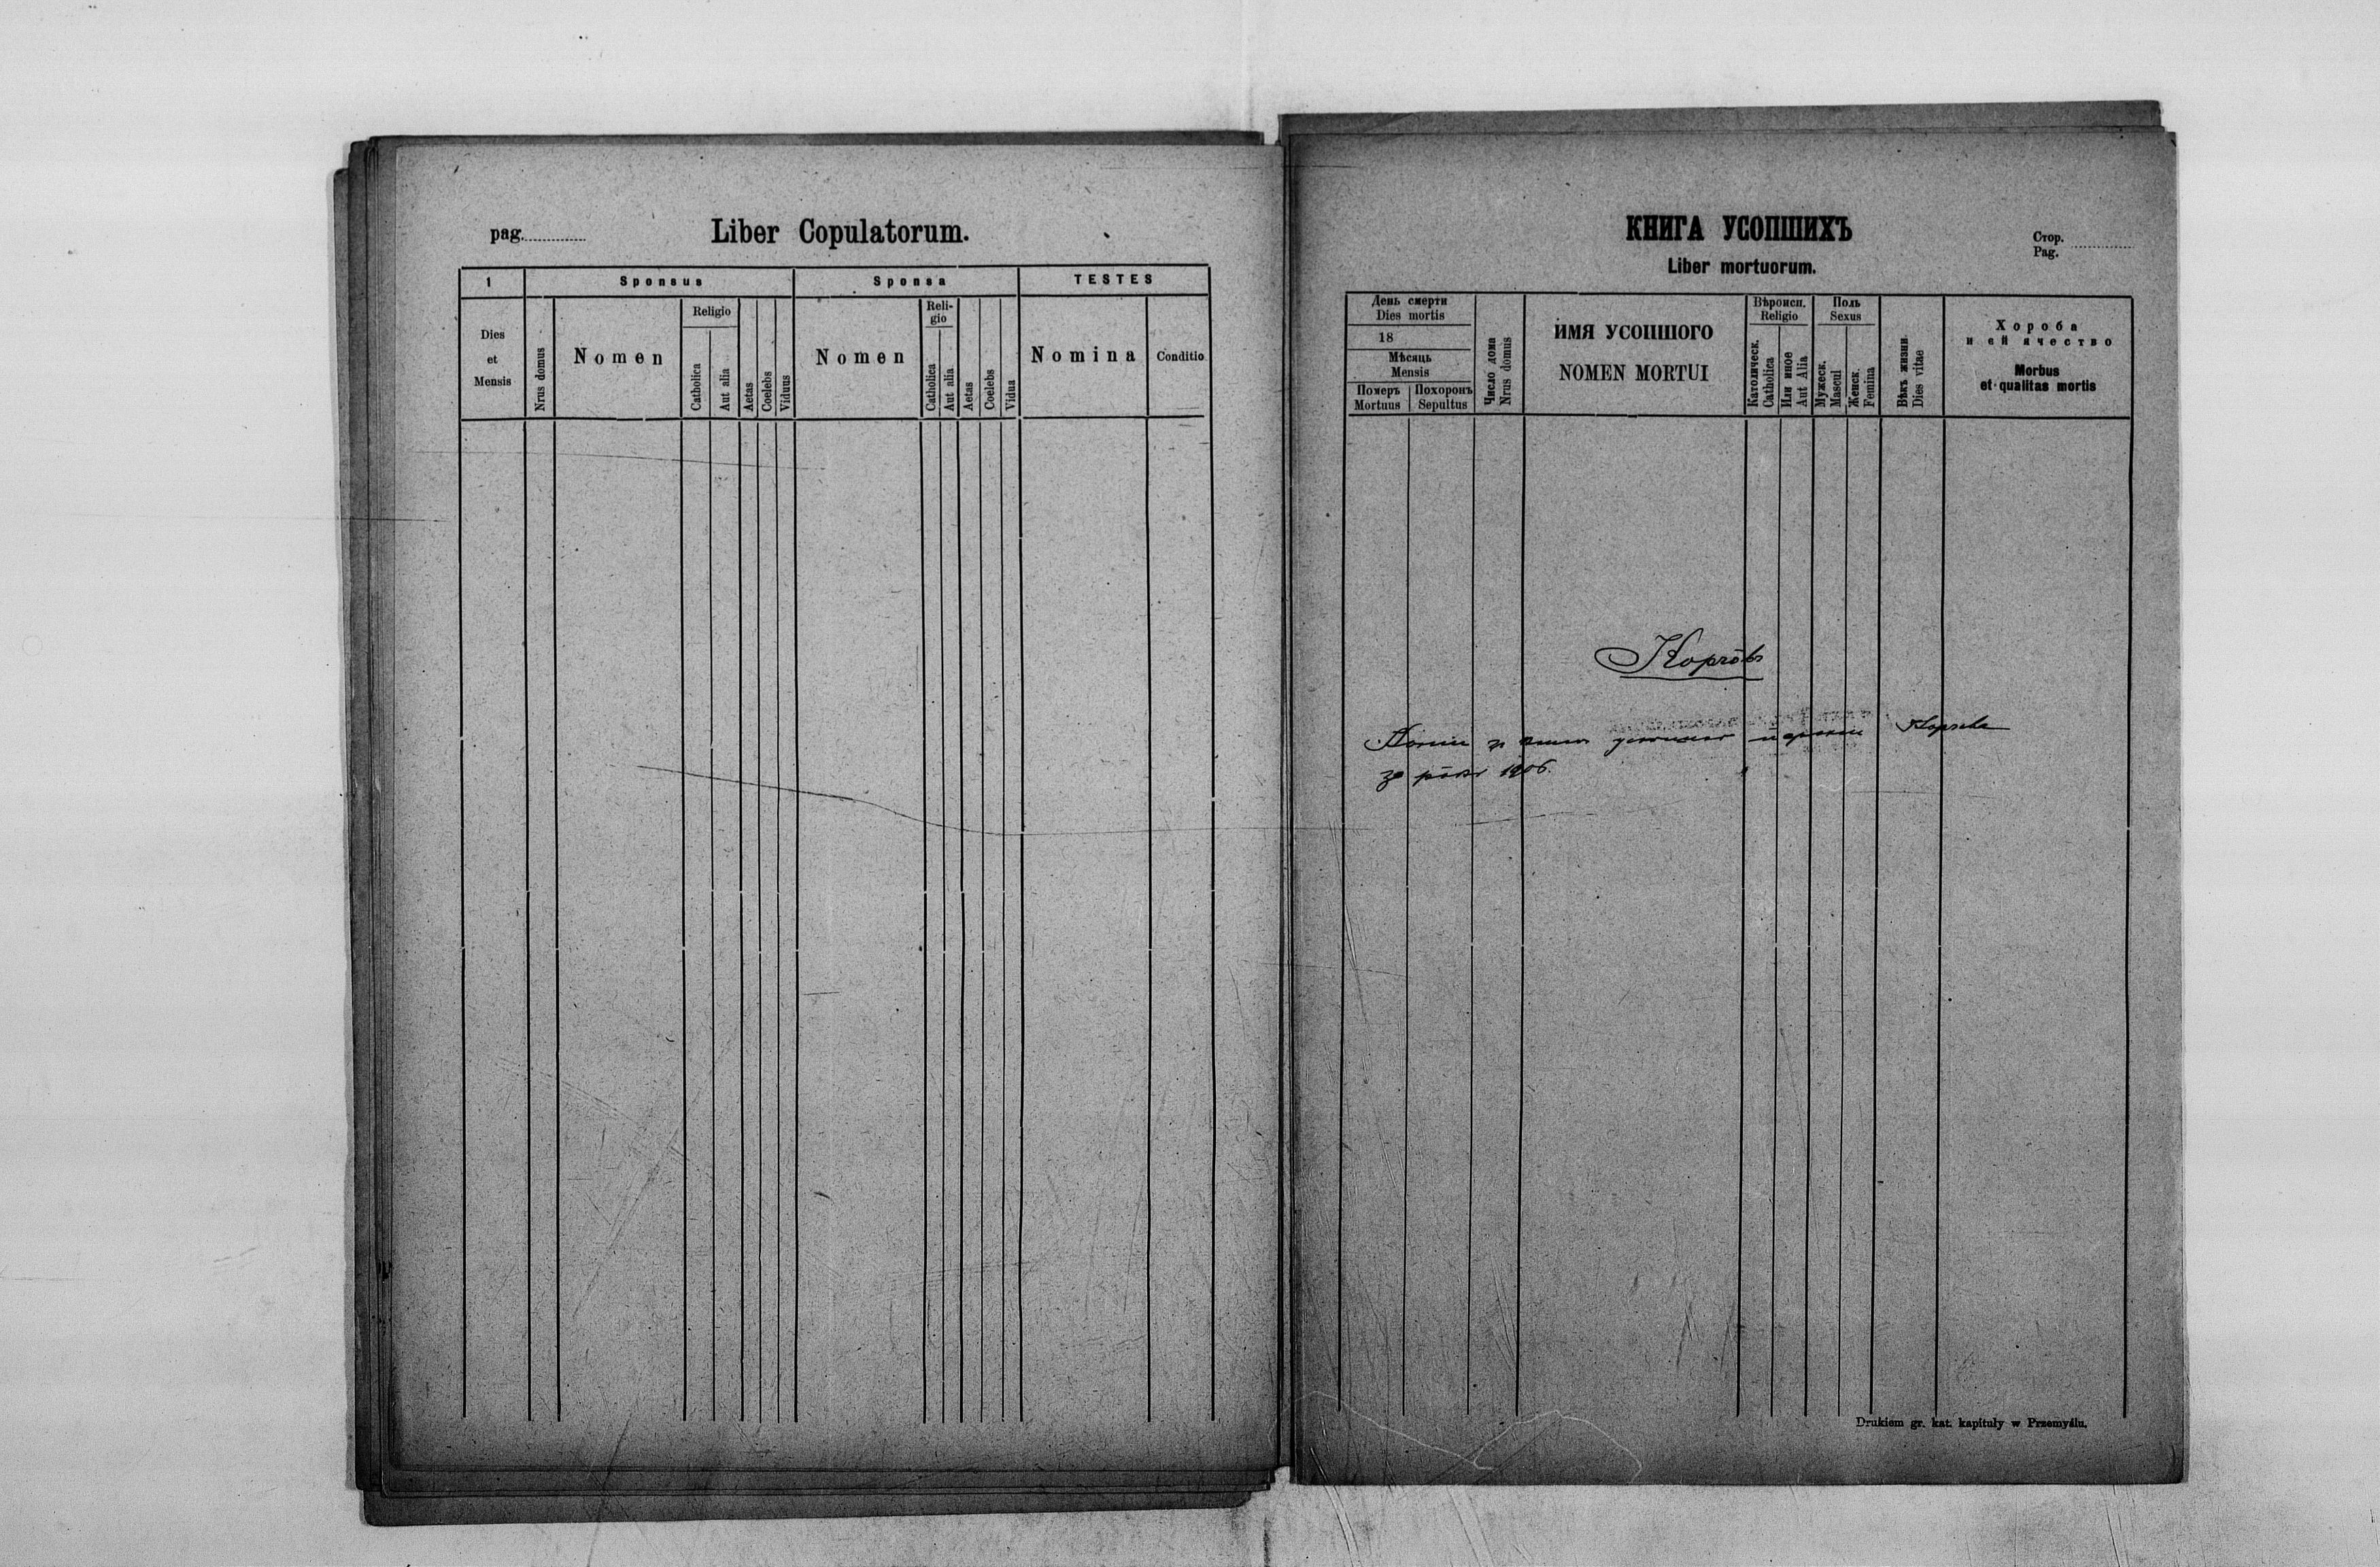 pag.
Liber Copulatorum.
1
Sponsus
Sponsa
TESTES
Dies
et
Mensis
Nrus domus
Nomen
Religio
Catholica
Aut alia
Aetas
Coelebs
Viduus
Nomen
Reli-
gio
Catholica
Aut alia
Aetas
Coelebs
Vidua
Nomina
Conditio
КНИГА УСОПШИХЪ
Liber mortuorum.
Стор.
Pag.
День смерти
Dies mortis
18
Мѣсяць
Mensis
Померъ
Mortuus
Похоронъ
Sepultus
Число дома
Nrus domus
ИМЯ УСОПШОГО
NOMEN MORTUI
Вѣроисп.
Religio
Католическ.
Catholica
Или иное
Aut Alia
Полъ
Sexus
Мужеск.
Mascul
Женск.
Femina
Вѣкъ жизни
Dies vitae
Хороба
и ей ячество
Morbus
et qualitas mortis
Корчôвъ
за рôкъ 1906.
Drukiem gr. kat. kapituły w Przemyślu.